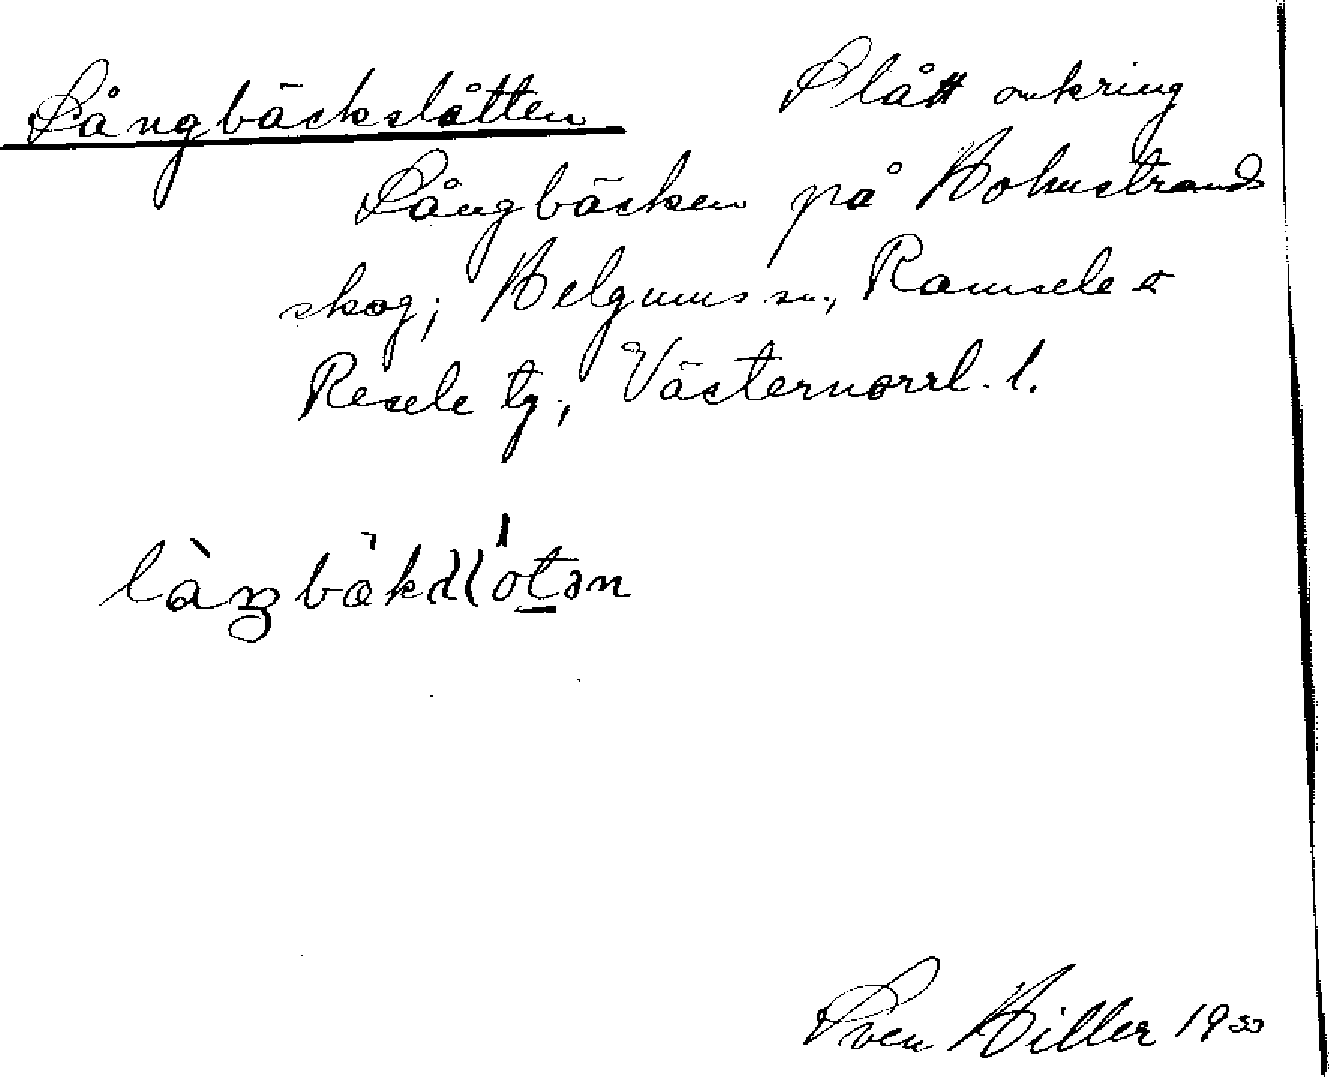 Långbäckslåtten Slått omkring
Långbäcken på Holmstrands
skog; Helgums sn., Ramsele o
Resele tg; Västernorrl. l.
Sven Hiller 19